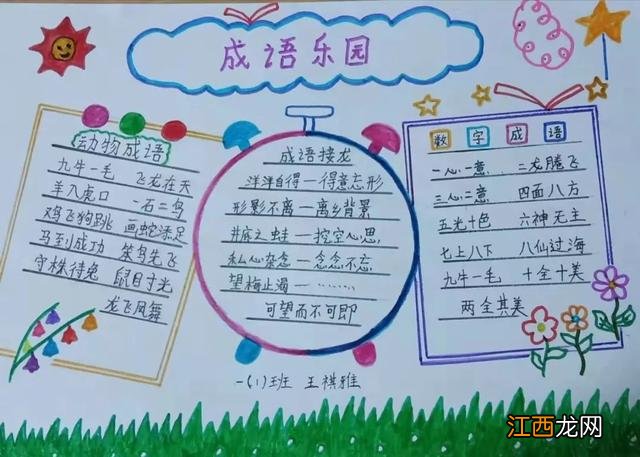 成语乐园
动物成语
九牛一毛 飞龙在天
羊入虎口 一石二鸟
鸡飞狗跳 画蛇添足
马到成功 笨鸟先飞
守株待兔 鼠目寸光
龙飞凤舞
成语接龙
洋洋自得—得意忘形
形影不离—离乡背景
井底之蛙—挖空心思
私心杂念—念念不忘
望梅止渴—………
可望而不可即
一(1)班 王祺雅
数字成语
一心一意 二龙腾飞
三心二意 四面八方
五光十色 六神无主
七上八下 八仙过海
九牛一毛 十全十美
两全其美
江西龙网